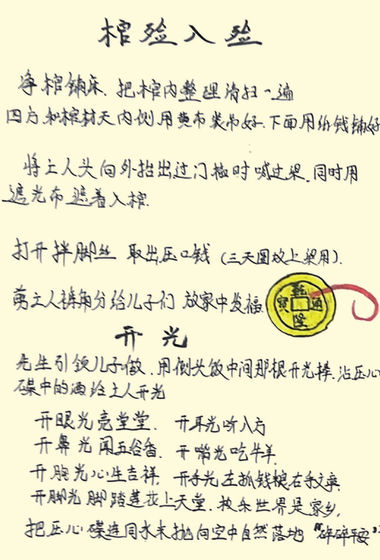 棺殓入殓
净棺铺床.把棺内整理清扫一遍
四方和棺材天内侧用黄布装吊好.下面用纸钱铺好
将亡人头向外抬出过门槛时喊过梁.同时用
遮光布遮着入棺.
打开拌脚丝 取出压口钱(三天圆坟上梁用).
剪亡人裤角分给儿子们 放家中发福.
乾隆通宝
开光
先生引领儿子做.用倒头饭中间那根开光棒.沾压心
碟中的酒给亡人开光
开眼光亮堂堂. 开耳光听八方
开鼻光闻五谷香. 开嘴光吃牛羊.
开胸光心生吉祥. 开手光左抓钱粮右手
开脚光脚踏莲花上天堂. 极乐世界是家乡.
把压心碟连同水米抛向空中自然落地"碎碎平安"